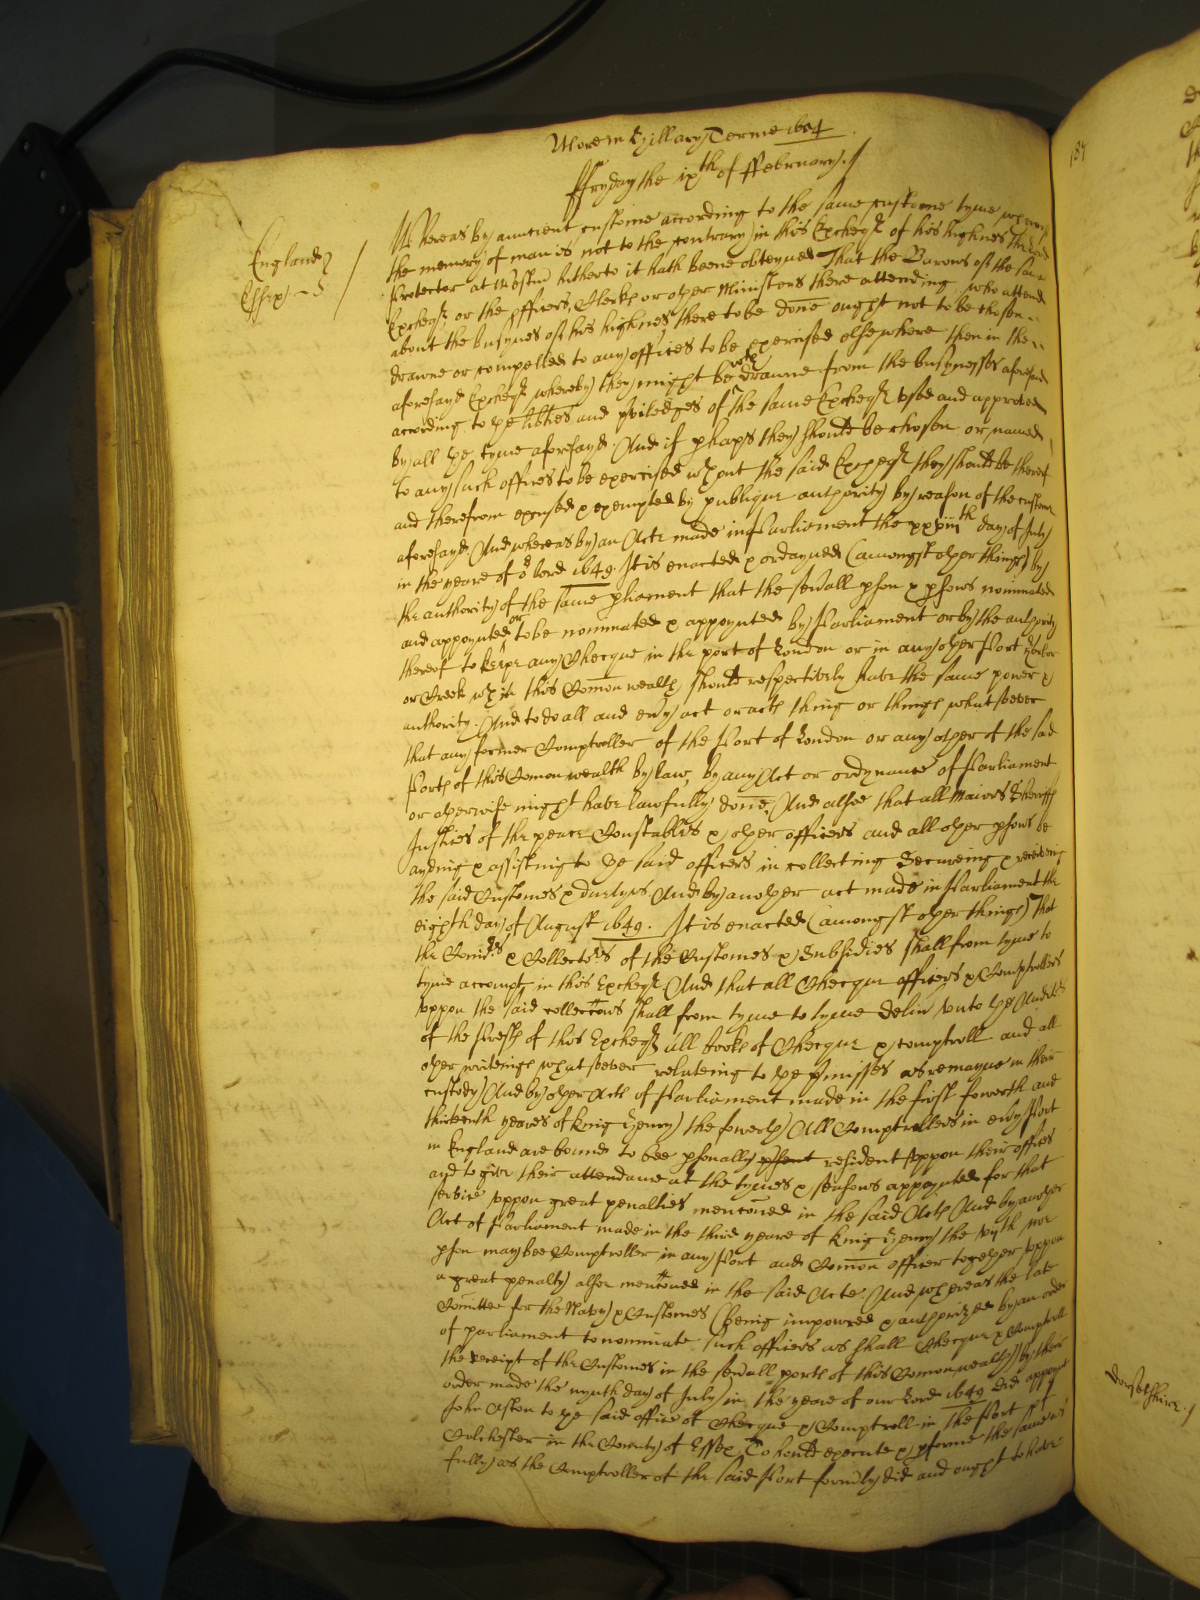 More in Hillary Terme 1654
Ffryday the ixth of Ffebruary
England
Essex
Whereas by auncient custome according to the same custome tyme whereof
the memory of man is not to the contrary in this Excheqr of his highnes the Lord
Protector at Westmr hitherto it hath beene obteyned That the Barons of the same
Excheqr or the officers, Clerks or other Ministers there attending who attend
about the busynes of his highnes there to be done ought not to be chosen
drawne or compelled to any offices to be exercised elsewhere then in the
aforesayd Excheqr whereby they might be wth drawne from the busynesses aforesaid
according to the libties and priledges of the same Excheqr used and approved
by all the tyme aforesayd. And if phaps they should be chosen or named
to any such offices to be exercised wthout the said Excheqr they should be thereof
and therefrom excused & exempted by publique authority by reason of the custome
aforesayd And whereas by an Acte made in Parliament the xxviiith day of July
in the yeare of or Lord 1649. It is enacted & ordayned (amongst other things) by
the authority of the same pliament that the sevall pson & psons nominated
and appoynted or to be nominated & appoynted by Parliament or by the authority
thereof to keepe any Checque in the port of London or in any other Port
or Creek wthin this Comon wealth should respectively have the same power &
authority. And to do all and evy act or acts thing or things whatsoever
that any former Comptroller of the Port of London or any other of the said
Ports of this Comon wealth by law, by any Act or ordynance of Parliament
or otherwise might have lawfully done, And alsoe that all Maiors Sheriffs
Justices of the peace Constables & other officers and all other psons be
ayding & assisting to the said officers in collecting Secureing & receiving
the said Customes & dutyes And by another act made in Parliament the
eighth day of August 1649. It is enacted (amongst other things) That
the Comrs & Collectors of the Customes & Subsidies shall from tyme to
tyme accompt in this Excheqr And that all Checque officers & Comptrollers
uppon the said collectors shall from tyme to tyme deliv unto the Auditrs
of the Prests of this Excheqr all books of Checque & comptroll and all
other writeings whatsoever relateing to the pmisses as remayne in their
custody And by other Acts of Parliament made in the first fowerth and
thirteenth yeares of King Henry the fowerth All Comptrollers in evy Port
in England are bound to bee psonally psent resident uppon their offices
and to give their attendance at the tymes & seasons appoynted for that
service uppon great penalties menconed in the said Acts And by another
Act of Parliament made in the third yeare of King Henry the vijth noe
pson may bee Comptroller in any Port and Comon officer together uppon
a great penalty alsoe mentioned in the said Acte And whereas the late
Comittee for the Navy & Customes (being impowred & authorized by an order
of parliament to nominate such officers as shall Checque & Comptroll
the receipt of the Customes in the sevall ports of this Comonwealth) by their
order made the nynth day of July in the yeare of our Lord 1649 did appoynt
John Aston to the said office of Checque & Comptroll in the Port of
Colchester in the County of Essex, To hould execute & pforme the same as
fully as the Comptroller of the said Port formly did and ought to have
184
Dorsetshire